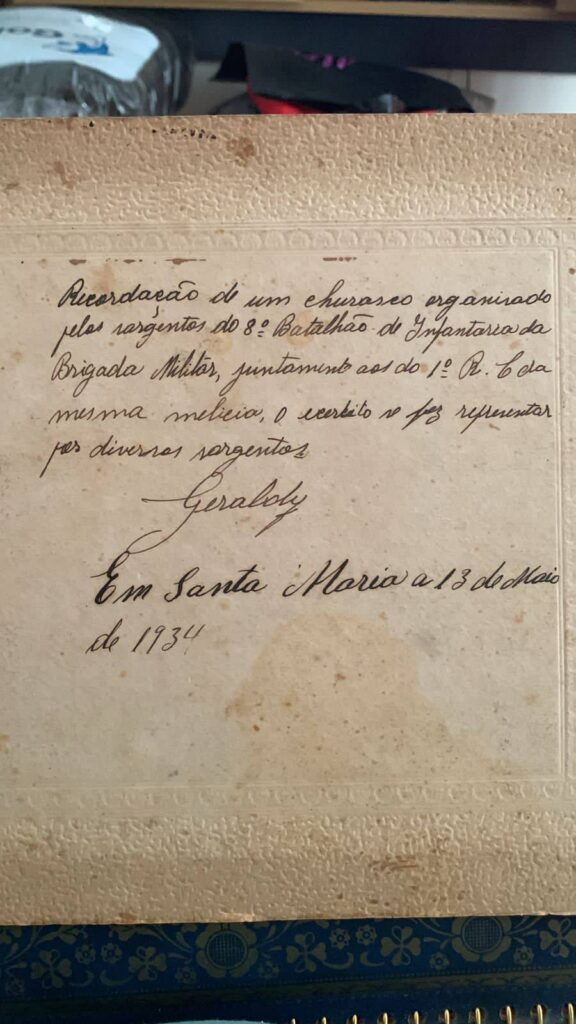 Recordação de um churasco organisado
pelos sargentos do 8º Batalhão de Infantaria da
Brigada Militar, juntamente aos do 1º R. C da
mesma melicia, o exercito se fez representar
por diversos sargentos
Geraldy
Em Santa Maria a 13 de Maio
de 1934